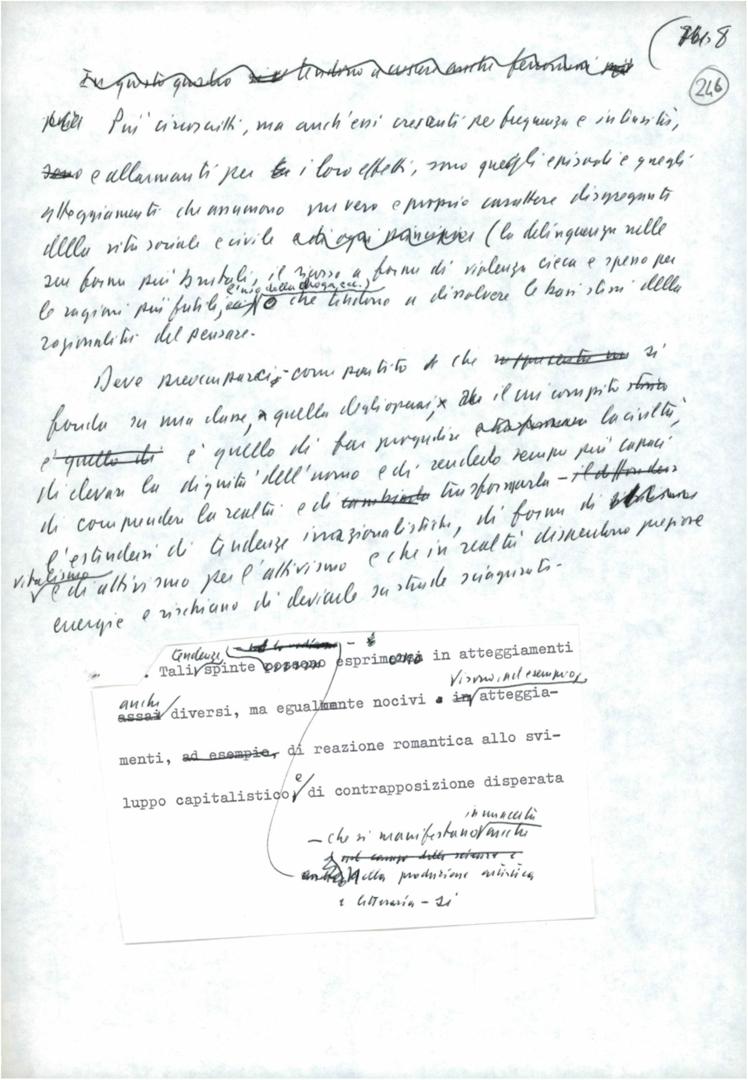 761.8
246
In questo quadro tendono a crescere anche fenomeni
Più circoscritti, ma anch'essi crescenti per frequenza e intensità,
e allarmanti per i loro effetti, sono quegli episodi e quegli
atteggiamenti che assumono un vero e proprio carattere disgregante
della vita sociale e civile e di ogni (la delinquenza nelle
sue forme più brutali, il ricorso a forme di violenza cieca e spesso per
l'uso della droga, ecc.)
le ragioni più futili, o che tendono a dissolvere le basi stesse della
razionalità del pensare.
Deve preoccuparci, come partito che si
fonda su una classe, quella degli operai, il cui compito storico
è quello di è quello di far progredire la civiltà,
di elevare la dignità dell'uomo e di renderlo sempre più capace
di comprendere la realtà e di cambiarla trasformarla – il diffondersi
l'estendersi di tendenze irrazionalistiche, di forme di
vitalismo
e di attivismo per l'attivismo e che in realtà disperdono preziose
energie e rischiano di deviarle su strade sciagurate.
tendenze
Tali spinte possono esprimersi in atteggiamenti
anche
vi sono, ad esempio,
assai diversi, ma egualmente nocivi. in atteggia-
menti, ad esempio, di reazione romantica allo svi-
e
luppo capitalistico, di contrapposizione disperata
in una certa
– che si manifestano anche
nel campo della scienza e
anche nella produzione artistica
e letteraria – si